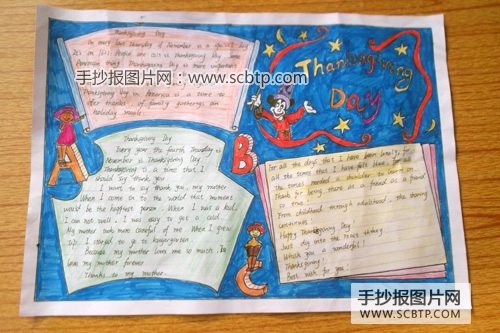 Thanksgiving Day
In every last Thursday of November is a special day
It's on this. People are
American
Thanksgiving Day in America is a time to
offer thanks, of family gatherings and
holiday meals.
手抄报图片网：www.scbtp.com
Thanksgiving
Day
Thanksgiving Day
Every year the fourth Thursday in
November is Thanksgiving Day
Thanksgiving is a time that I
should say thank you.
I want to say thank you, my mother.
When I come in to the world that moment
would be the happiest person. When I was a kid,
I can not walk. I was easy to get a cold.
My mother took more careful of me. When I grew
up. I started to go to kindergarten.
Because my mother love me so much. I
love my mother forever.
Thanks to my mother.
A
B
C
For all the days that I have been lonely, for
all the times that I have
The times needed a shoulder to lean on
Thanks for being there as a friend as a friend
so true
From childhood through adulthood. the sharing
continues!
Happy Thanksgiving Day
Just
Wish you a wonderful
Thanksgiving!
Best wish for you!
手抄报图片网
WWW.SCBTP.COM